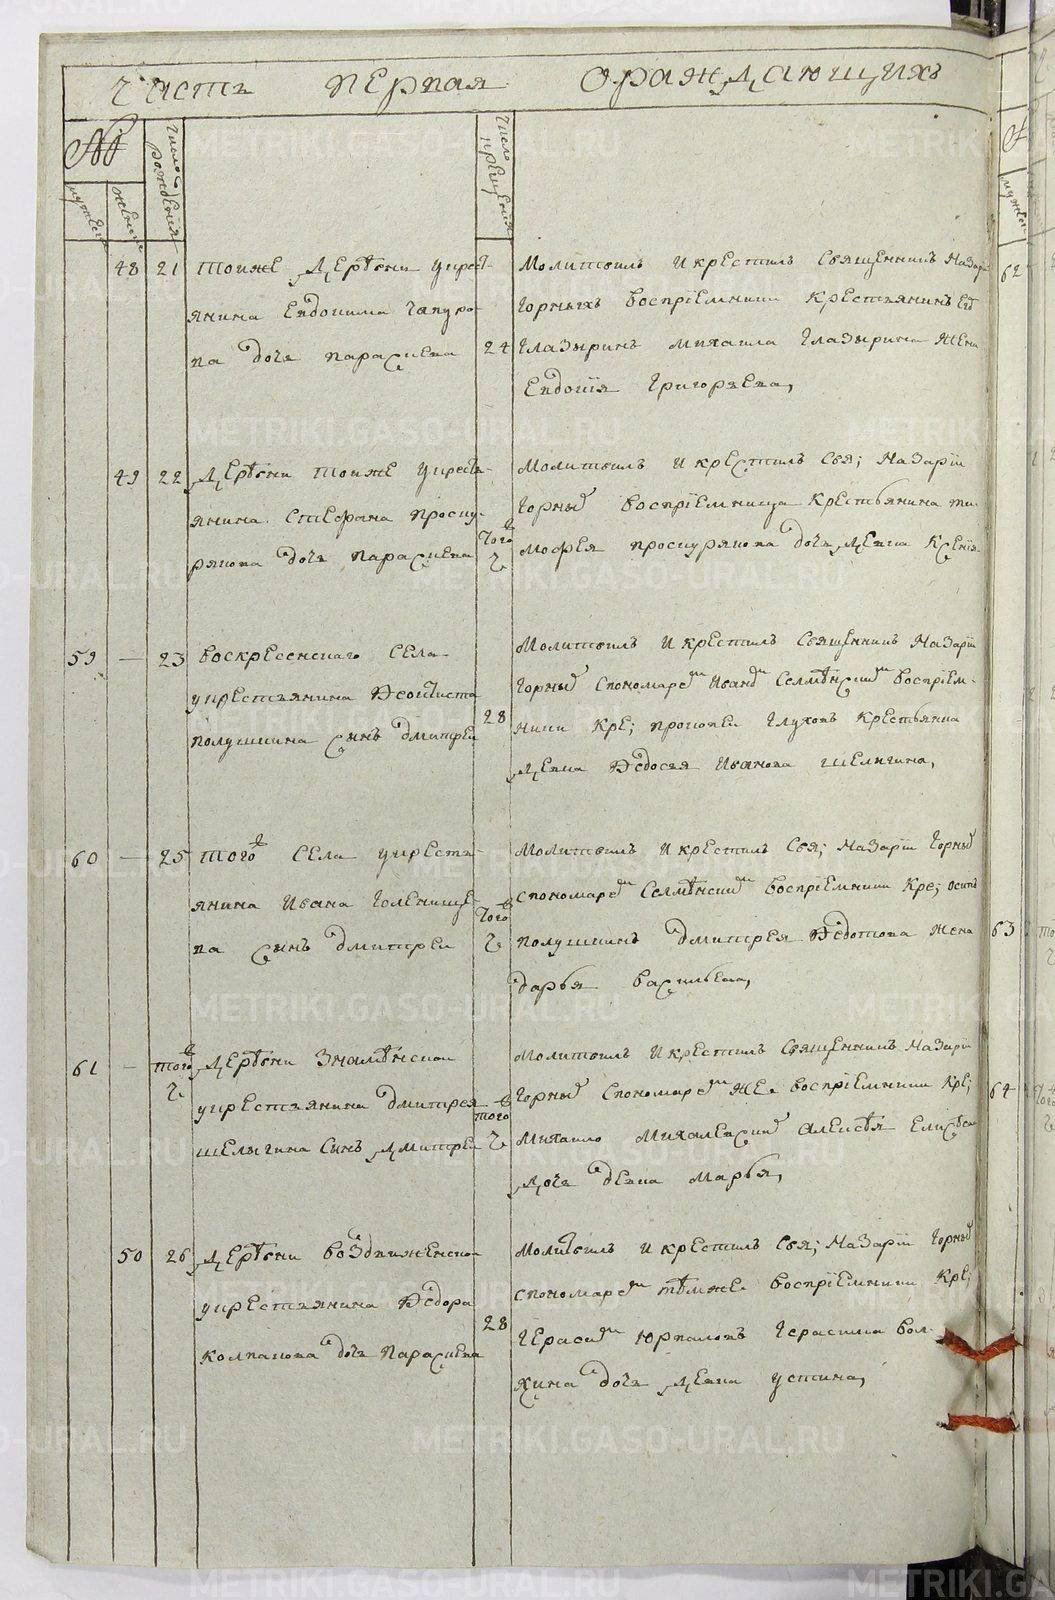 Часть первая о раждающихъ
№
число рождения
число крещения
мужеск
женск
48 21 тоиже деревни у крест-
янина Евдокима Чапуро-
ва дочь Параскева
24
Молитвилъ и крестилъ священникъ Назари
Горныхъ восприемники крестьянинъ
Глазыринъ Михаила Глазырина жена
Евдокия Григорьева,
49 22 деревни тоиже у крестъ-
янина Стефана Проску-
рякова дочь Параскева
того ч
Молитвилъ и крестилъ свя; Назарий
Горныхъ восприемница крестьянина Ти-
мофея Проскурякова дочь девка Ксения
59 — 23 Воскресенскаго села
у крестьянина Феоктиста
Полушкина сынъ Дмитреи
28
Молитвилъ и крестилъ священникъ Назарий
Горныхъ с пономаремъ Иваномъ Селмѣнскимъ восприем-
ники кре; Прокопеи Глуховъ крестьянка
девка Федосья Иванова Шелыгина,
60 — 25 того села у кресть-
янина Ивана Голенище-
ва сынъ Дмитреи
того ч
Молитвилъ и крестилъ свя; Назарий Горныхъ
с пономаремъ Селмѣнскимъ восприемники кре; Осипъ
Полушкинъ Дмитрея Федотова жена
Дарья Васильева,
61 — того ч деревни Знамѣнскои
у крестьянина Дмитрея
Шелыгина сынъ Дмитреи
того ч
Молитвилъ и крестилъ священникъ Назарий
Горныхъ с пономаремъ же восприемники кре;
Михаило Михалевский Алексѣя Елисѣева
дочь девка Марья,
50 26 деревни Воздвиженскои
у крестьянина Федора
Колпакова дочь Параскева
28
Молитвилъ и крестилъ свя; Назарий Горныхъ
с пономаремъ тѣмже восприемники кре;
Герасимъ Юрпаловъ Герасима Вол-
хина дочь девка Устина,
62
63
64